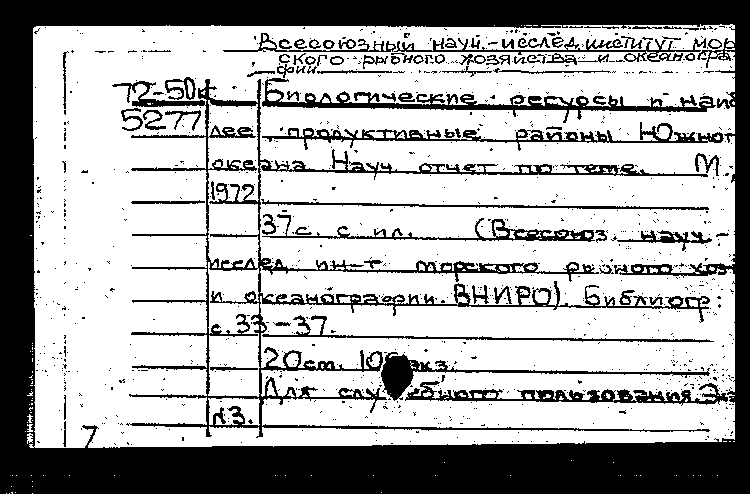 Всесоюзный науч.-исслед. институт мор
ского рыбного хозяйства и океаногра
фии.
72-50к
5277
Биологические ресурсы и наиб
лее продуктивные районы Южног
океана Науч отчет по теме. М.,
1972
37с. с ил. (Всесоюз. науч.-
исслед. ин-т морского рыбного хоз
и океанографии. ВНИРО). Библиогр:
с.33-37.
20см. 100экз.
Для служебного пользования. Экз
№3.
7